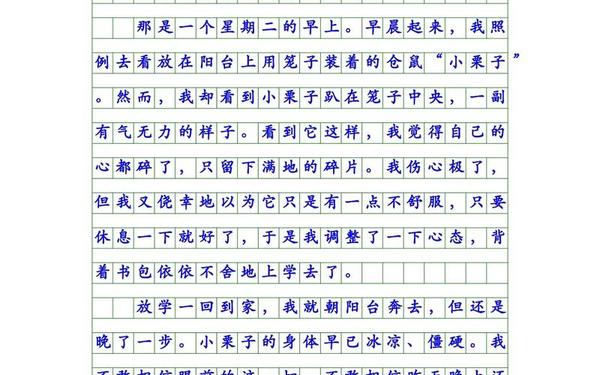 那是一个星期二的早上。早晨起来，我照
例去看放在阳台上用笼子装着的仓鼠“小栗子”
。然而，我却看到小栗子趴在笼子中央，一副
有气无力的样子。看到它这样，我觉得自己的
心都碎了，只留下满地的碎片。我伤心极了，
但我又侥幸地以为它只是有一点不舒服，只要
休息一下就好了，于是我调整了一下心态，背
着书包依依不舍地上学去了。
放学一回到家，我就朝阳台奔去，但还是
晚了一步。小栗子的身体早已冰凉、僵硬。我